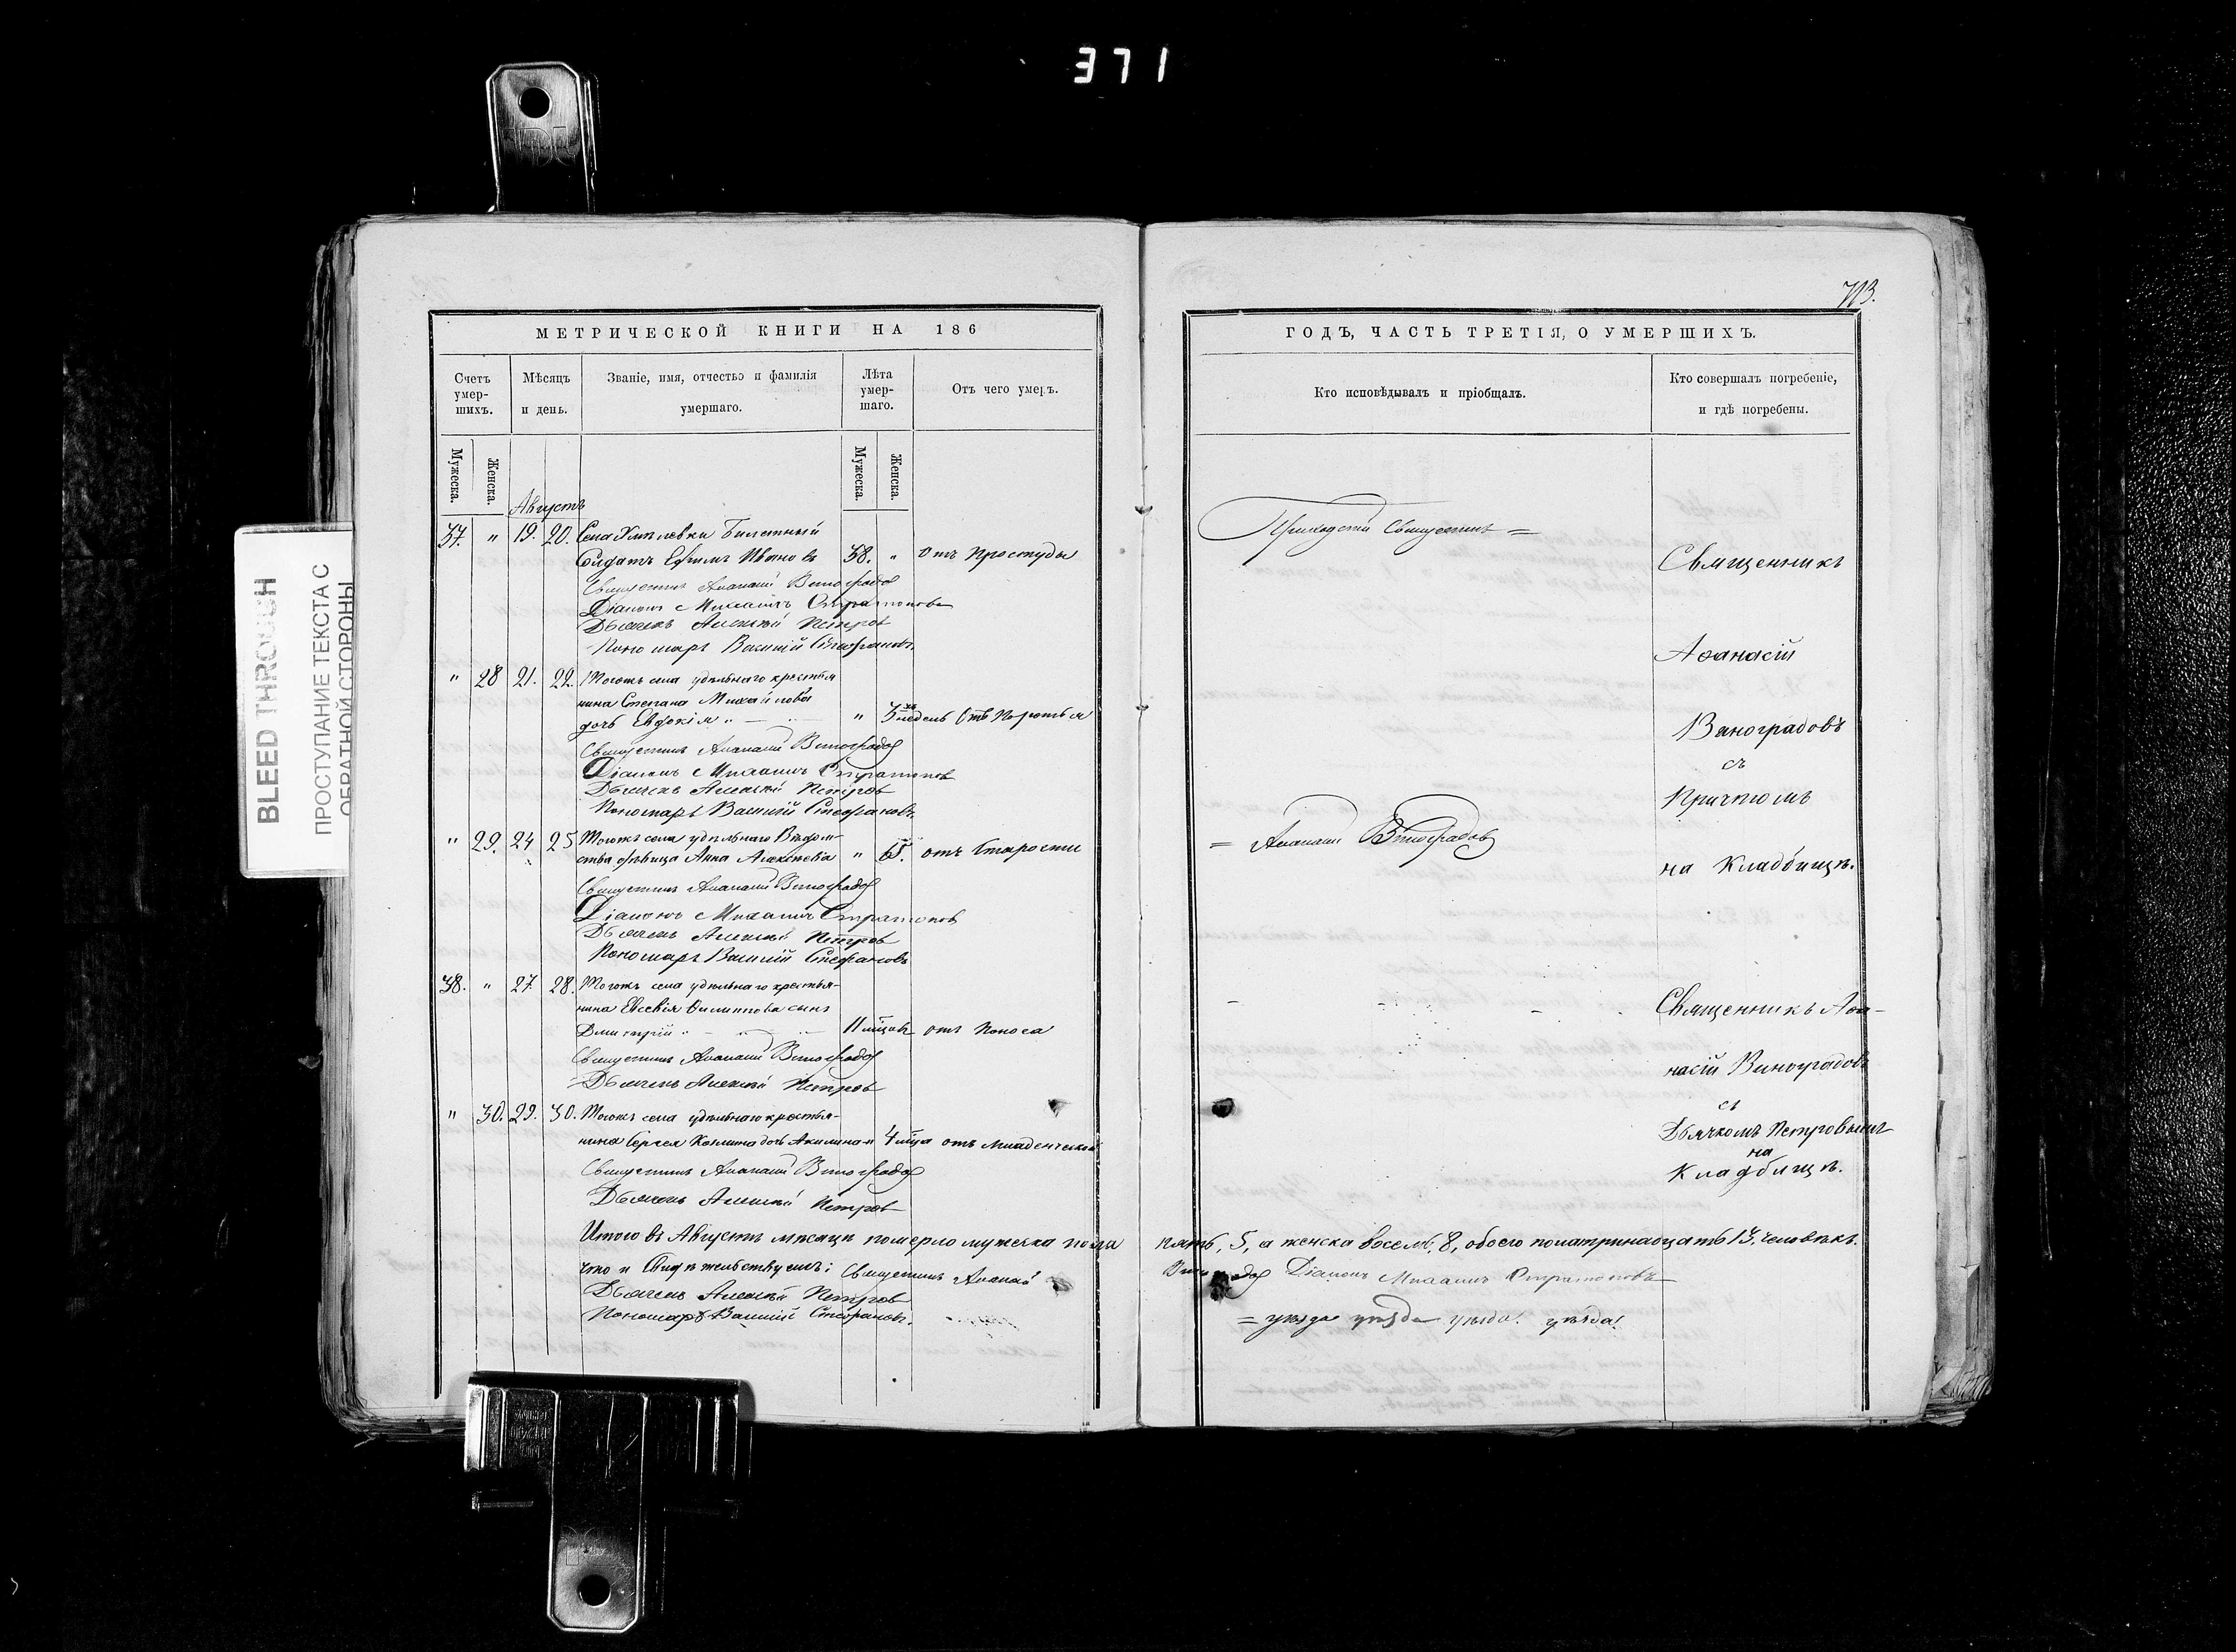 371
BLEED THROUGH
ПРОСТУПАНИЕ ТЕКСТА С
ОБРАТНОЙ СТОРОНЫ
МЕТРИЧЕСКОЙ КНИГИ НА 186
Счетъ умер-шихъ.
Мѣсяцъ и день.
Званіе, имя, отчество и фамилія умершаго.
Лѣта умер-шаго.
Отъ чего умеръ.
Мужеска.
Женска.
Мужеска.
Женска.
Августъ
37. " 19. 20. Села Хмѣлевки Билетный
Солдатъ Ефимъ Ивановъ 38. " отъ Простуды
Священникъ Афанасій Виноградовъ
Діаконъ Михаилъ Стратоновъ
Дьячекъ Алексѣй Петровъ
Пономарь Василій Стефановъ
" 28 21. 22. Тогожъ села удѣльнаго крестья
нина Степана Михайлова
дочь Евдокія " 3 недель Отъ
Священникъ Афанасій Виноградовъ
Діаконъ Михаилъ Стратоновъ
Дьячекъ Алексѣй Петровъ
Пономарь Василій Стефановъ.
" 29. 24 25 Тогожъ села удѣльнаго Вѣдом-
ства дѣвица Анна Алексѣева " 65. отъ Старости
Священникъ Афанасій Виноградовъ
Діаконъ Михаилъ Стратоновъ
Дьячекъ Алексѣй Петровъ
Пономарь Василій Стефановъ
38. " 27. 28. Тогожъ села удѣльнаго крестья-
нина Евсевія Филиппова сынъ
Дмитрій 11 мѣцовъ отъ Поноса
Священникъ Афанасій Виноградовъ
Дьячекъ Алексѣй Петровъ
" 30. 29. 30. Тогожъ села удѣльнаго крестья-
нина Сергея Козмина дочь Акилина " 4 мѣца отъ младенческой
Священникъ Афанасій Виноградовъ
Дьячекъ Алексѣй Петровъ
Итого въ Августѣ мѣсяцѣ померло мужеска пола
что и Свидѣтельствуемъ: Священникъ Афанасій
Дьячекъ Алексѣй Петровъ
Пономарь Василій Стефановъ.
713.
ГОДЪ, ЧАСТЬ ТРЕТІЯ, О УМЕРШИХЪ.
Кто исповѣдывалъ и пріобщалъ.
Кто совершалъ погребеніе,
и гдѣ погребены.
Священникъ =
Священникъ
Аѳанасій
Виноградовъ
съ
Причтомъ
= Афанасій Виноградовъ
на Кладбищѣ.
Священникъ Аѳа-
насій Виноградовъ
съ
Дьячкомъ Петровымъ
на
Кладбищѣ.
пять, 5, а женска восемь, 8, обоего пола тринадцать 13. человѣкъ.
Виноградовъ Діаконъ Михаилъ Стратоновъ